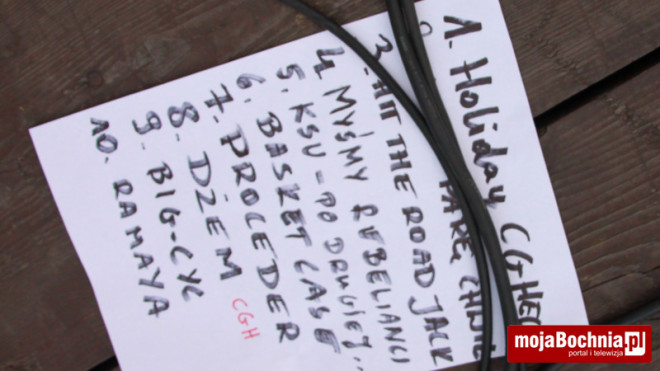 1. Holiday CGHEC
PARĘ CHWIL
3. HIT THE ROAD JACK
4. MYŚMY REBELIANCI
5. KSU - PO DRUGIEJ..
6. BASKET CASE
7. PROCEDER
8. DŻEM CGH
9. BIG-CYC
10. RAMAYA
mojaBochnia.pl
portal i telewizja